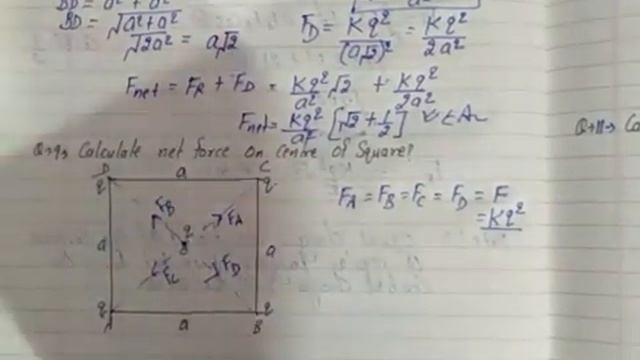 BD = √a²+a²
√2a² = a√2
F_D = Kq²/(a√2)² = Kq²/2a²
F_net = F_R + F_D = Kq²/a² √2 + Kq²/2a²
F_net = Kq²/a² [√2 + 1/2]
Q→9→ Calculate net force on Centre of Square?
Q→11→ Ca
D a C
q q
F_B F_A
a q a
F_C F_D
q q
A a B
F_A = F_B = F_C = F_D = F
= Kq²